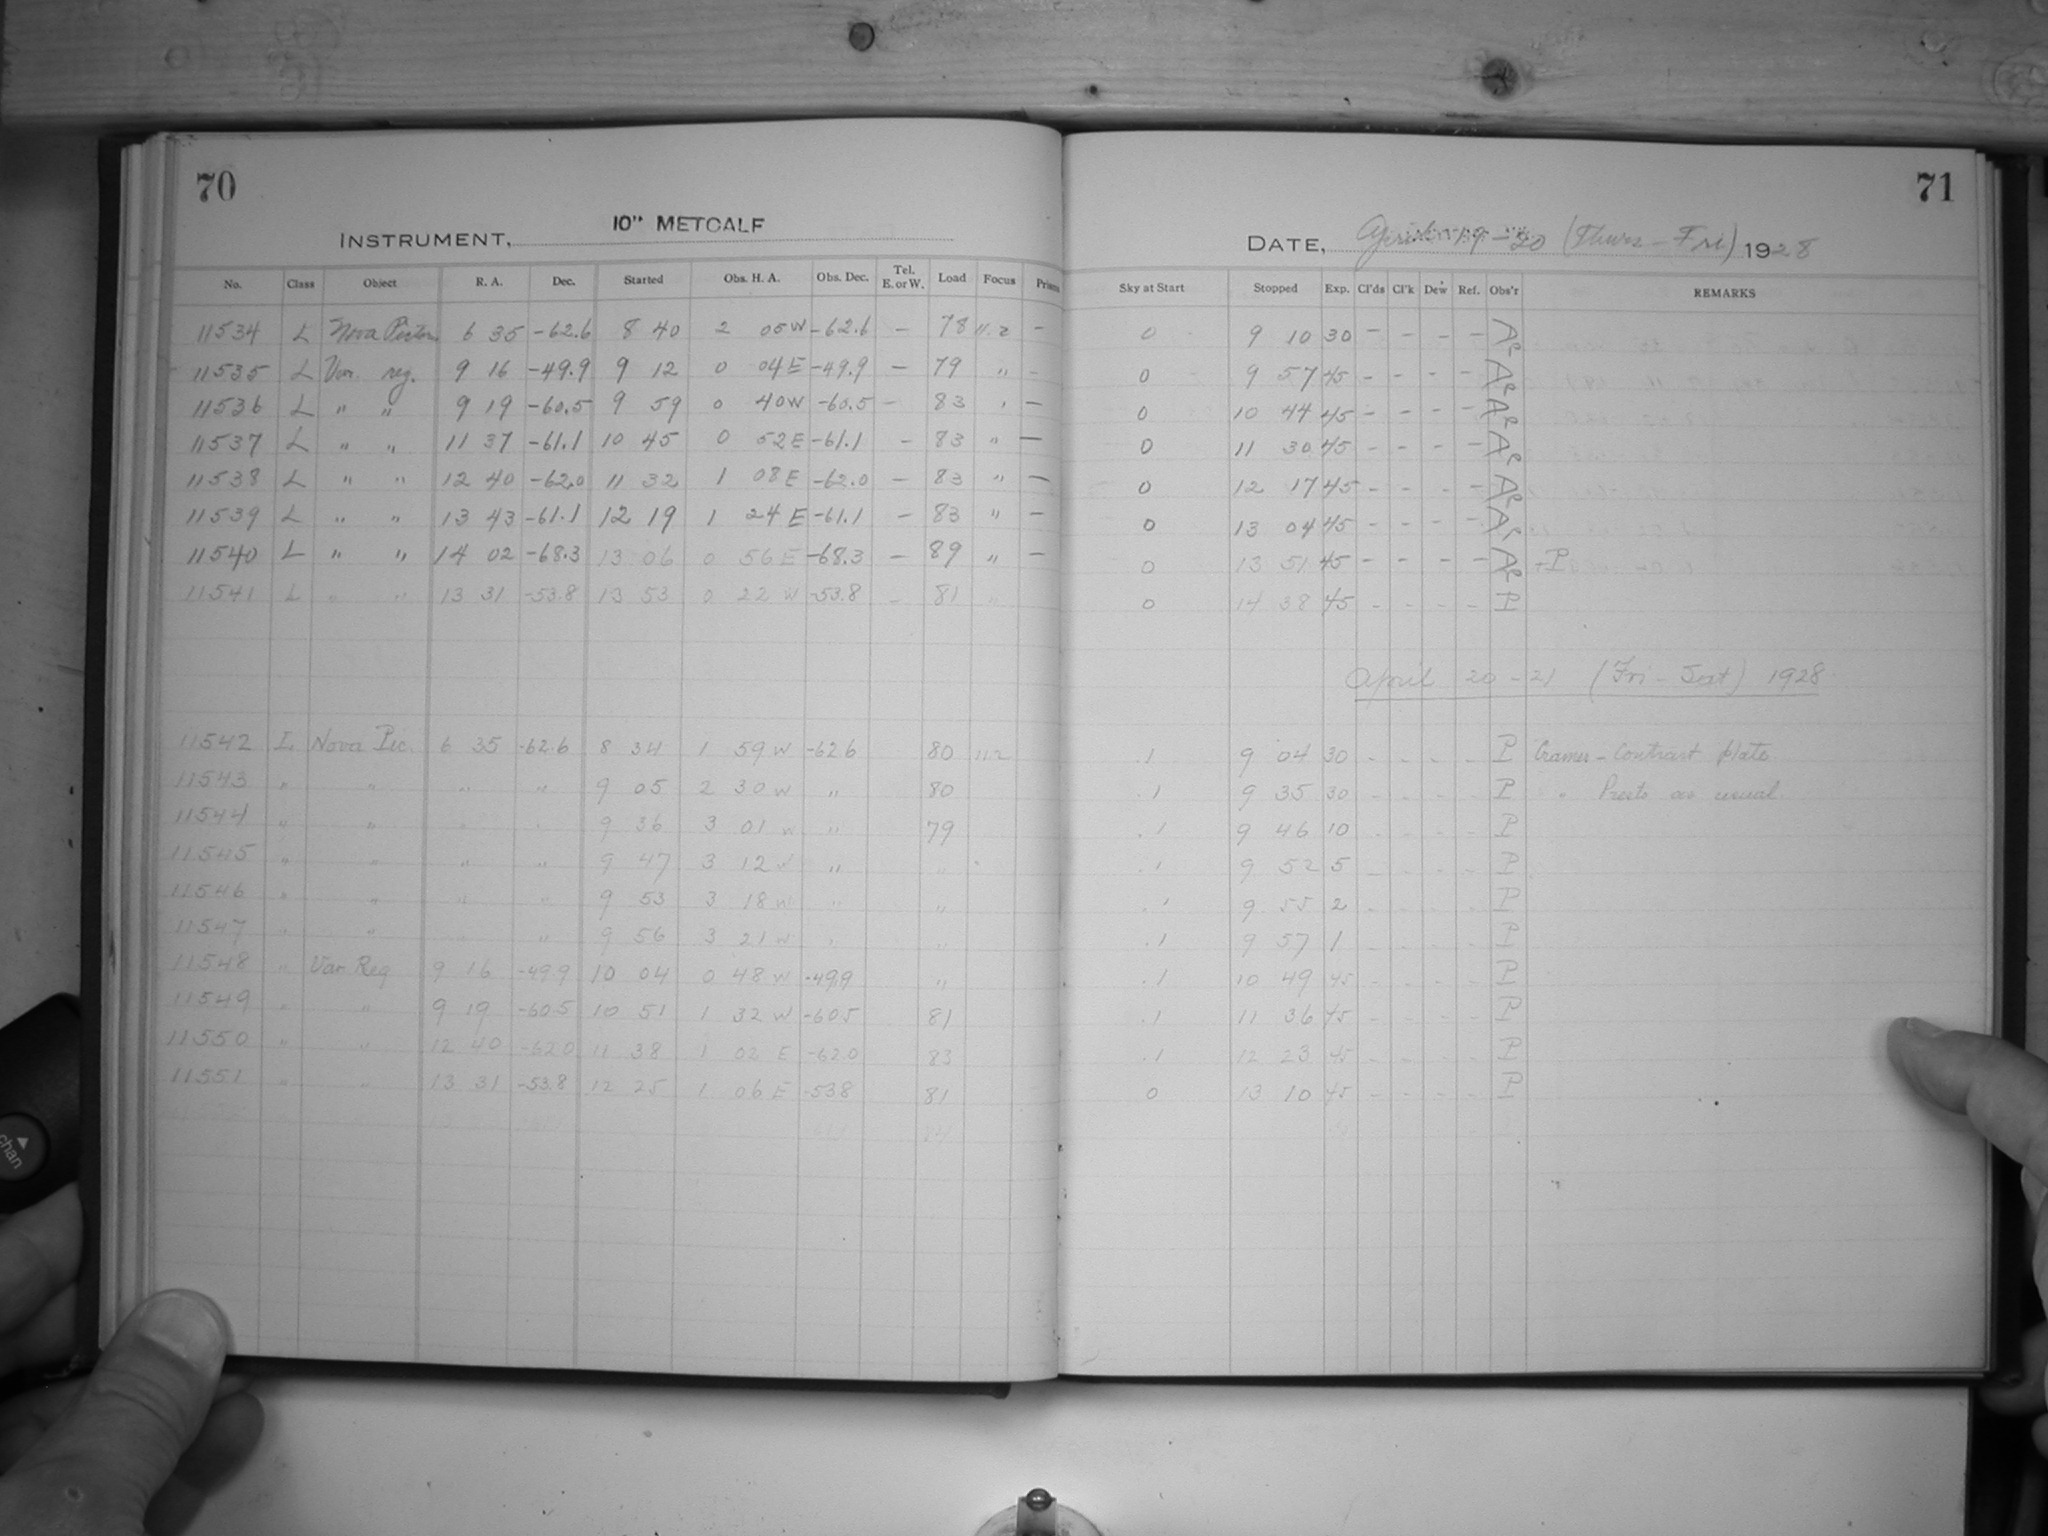 70
INSTRUMENT, 10" METCALF
No. Class Object R. A. Dec. Started Obs. H. A. Obs. Dec. Tel. E. or W. Load Focus Prism
11534 L Nova Pictoris 6 35 -62.6 8 40 2 05 W -62.6 - 78 11.2 -
11535 L Var. reg. 9 16 -49.9 9 12 0 04 E -49.9 - 79 " -
11536 L " " 9 19 -60.5 9 59 0 40 W -60.5 - 83 " -
11537 L " " 11 37 -61.1 10 45 0 52 E -61.1 - 83 " -
11538 L " " 12 40 -62.0 11 32 1 08 E -62.0 - 83 " -
11539 L " " 13 43 -61.1 12 19 1 24 E -61.1 - 83 " -
11540 L " " 14 02 -68.3 13 06 0 56 E -68.3 - 89 " -
11541 L " " 13 31 -53.8 13 53 0 22 W -53.8 - 81 "
11542 L Nova Pic. 6 35 -62.6 8 34 1 59 W -62.6 80 11.2
11543 " " " " 9 05 2 30 W " 80
11544 " " " " 9 36 3 01 W " 79
11545 " " " " 9 47 3 12 W " "
11546 " " " " 9 53 3 18 W " "
11547 " " " " 9 56 3 21 W " "
11548 " Var Reg 9 16 -49.9 10 04 0 48 W -49.9 "
11549 " " 9 19 -60.5 10 51 1 32 W -60.5 81
11550 " " 12 40 -62.0 11 38 1 02 E -62.0 83
11551 " " 13 31 -53.8 12 25 1 06 E -53.8 81
71
DATE, April 19-20 (Thurs-Fri) 1928
Sky at Start Stopped Exp. Cl'ds Cl'k Dew Ref. Obs'r REMARKS
0 9 10 30 - - - -
0 9 57 45 - - - -
0 10 44 45 - - - -
0 11 30 45 - - - -
0 12 17 45 - - - -
0 13 04 45 - - - -
0 13 51 45 - - - - +P
0 14 38 45 - - - - P
April 20-21 (Fri-Sat) 1928
.1 9 04 30 - - - - P Cramer-Contrast plate
.1 9 35 30 - - - - P as usual
.1 9 46 10 - - - - P
.1 9 52 5 - - - - P
.1 9 55 2 - - - - P
.1 9 57 1 - - - - P
.1 10 49 45 - - - - P
.1 11 36 45 - - - - P
.1 12 23 45 - - - - P
0 13 10 45 - - - - P
chan